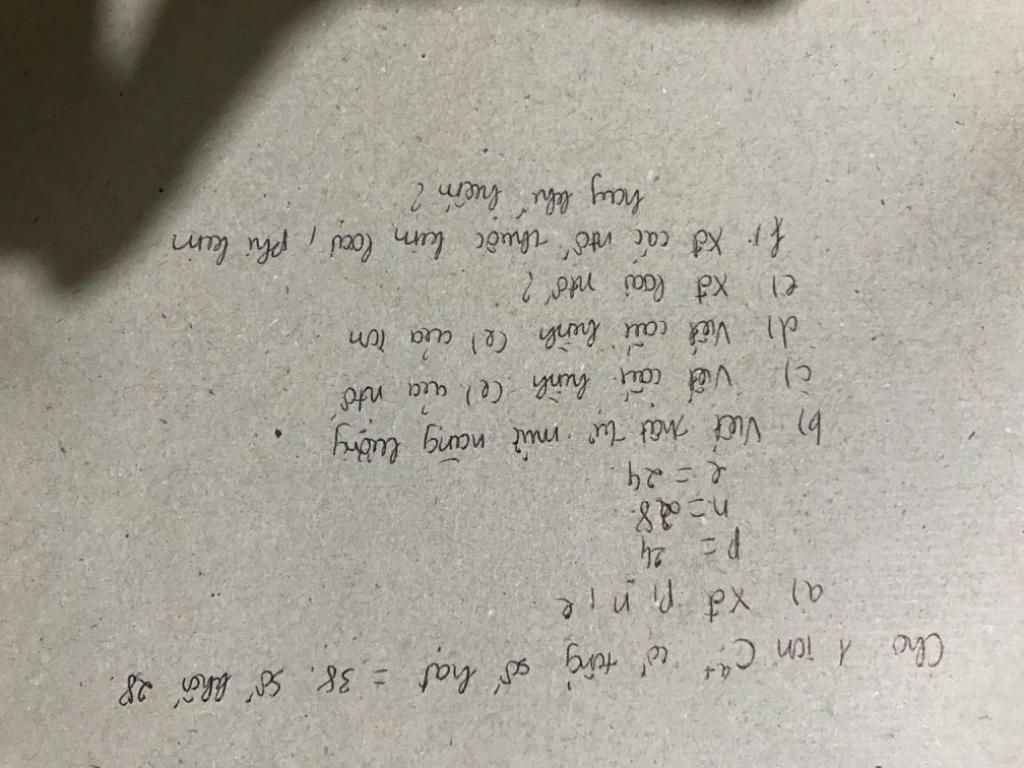 Cho 1 ion C⁴⁺ có tổng số hạt = 38. số khối 28.
a) Xđ p, n, e
p = 24
n = 28
e = 24
b) Viết trật tự mức năng lượng
c) Viết cấu hình (e) của ntố
d) Viết cấu hình (e) của ion
e) Xđ loại ntố?
f) Xđ các ntố thuộc kim loại, phi kim
hay khí hiếm?